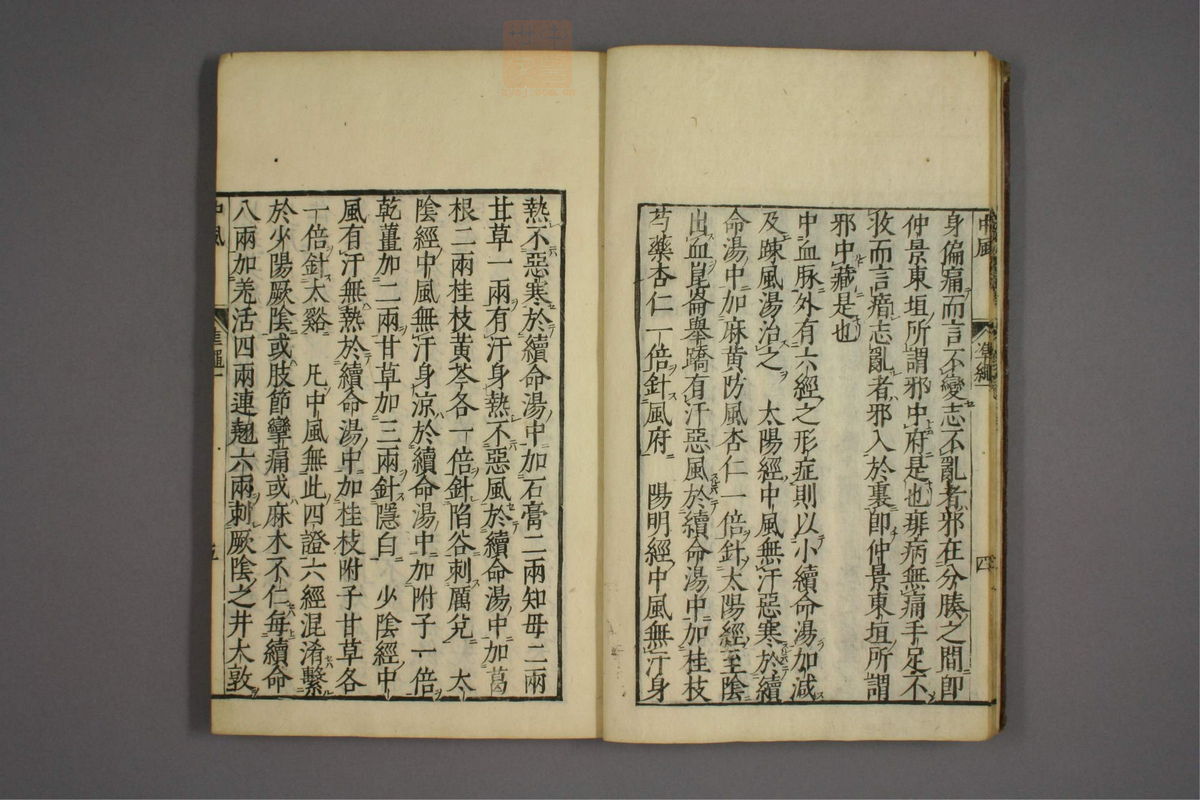 中風 準繩一 四
身偏痛而言不變志不亂者邪在分腠之間即
仲景東垣所謂邪中府是也痱病無痛手足不
收而言瘖志亂者邪入於裏即仲景東垣所謂
邪中藏是也
中血脉外有六經之形症則以小續命湯加減
及踈風湯治之 太陽經中風無汗惡寒於續
命湯中加麻黃防風杏仁一倍針太陽經至陰
出血崑崙舉蹻有汗惡風於續命湯中加桂枝
芍藥杏仁一倍針風府 陽明經中風無汗身
熱不惡寒於續命湯中加石膏二兩知母二兩
甘草一兩有汗身熱不惡風於續命湯中加葛
根二兩桂枝黃芩各一倍針陷谷刺厲兌 太
陰經中風無汗身涼於續命湯中加附子一倍
乾薑加二兩甘草加三兩針隱白 少陰經中
風有汗無熱於續命湯中加桂枝附子甘草各
一倍針太谿 凡中風無此四證六經混淆繫
於少陽厥陰或肢節攣痛或麻木不仁每續命
八兩加羗活四兩連翹六兩刺厥陰之井大敦
中風 準繩一 五